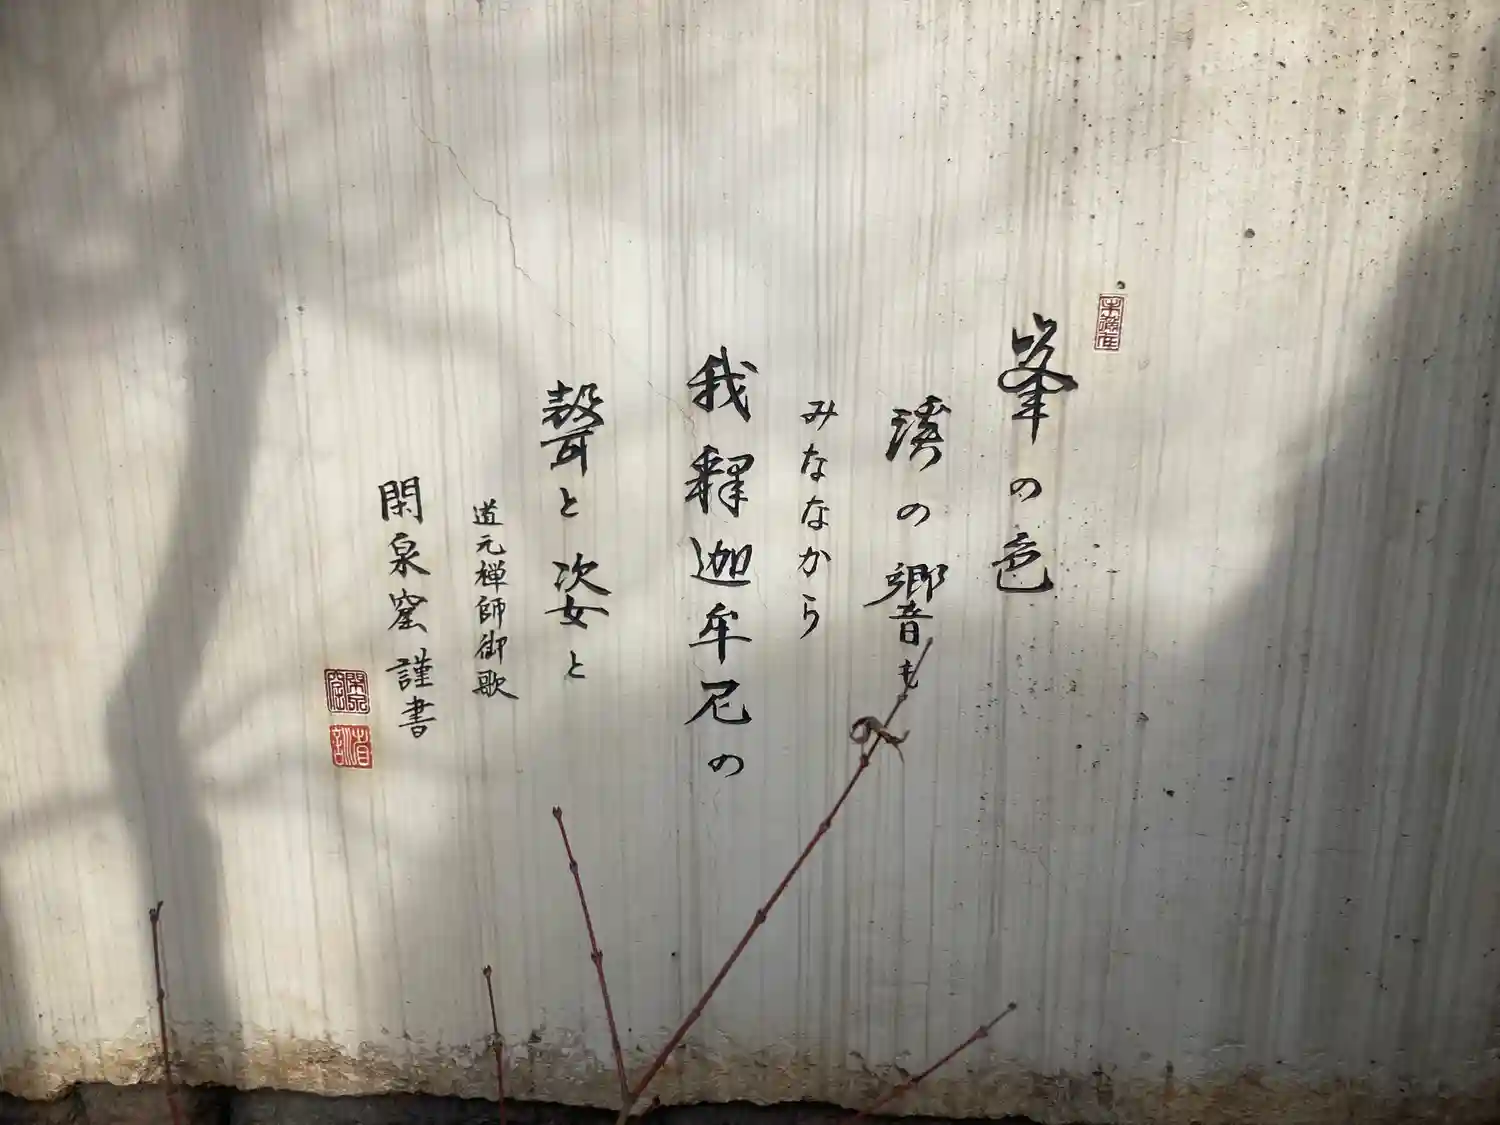 峯の色
溪の響も
みななから
我釋迦牟尼の
聲と姿と
道元禅師御歌
閑泉窟謹書